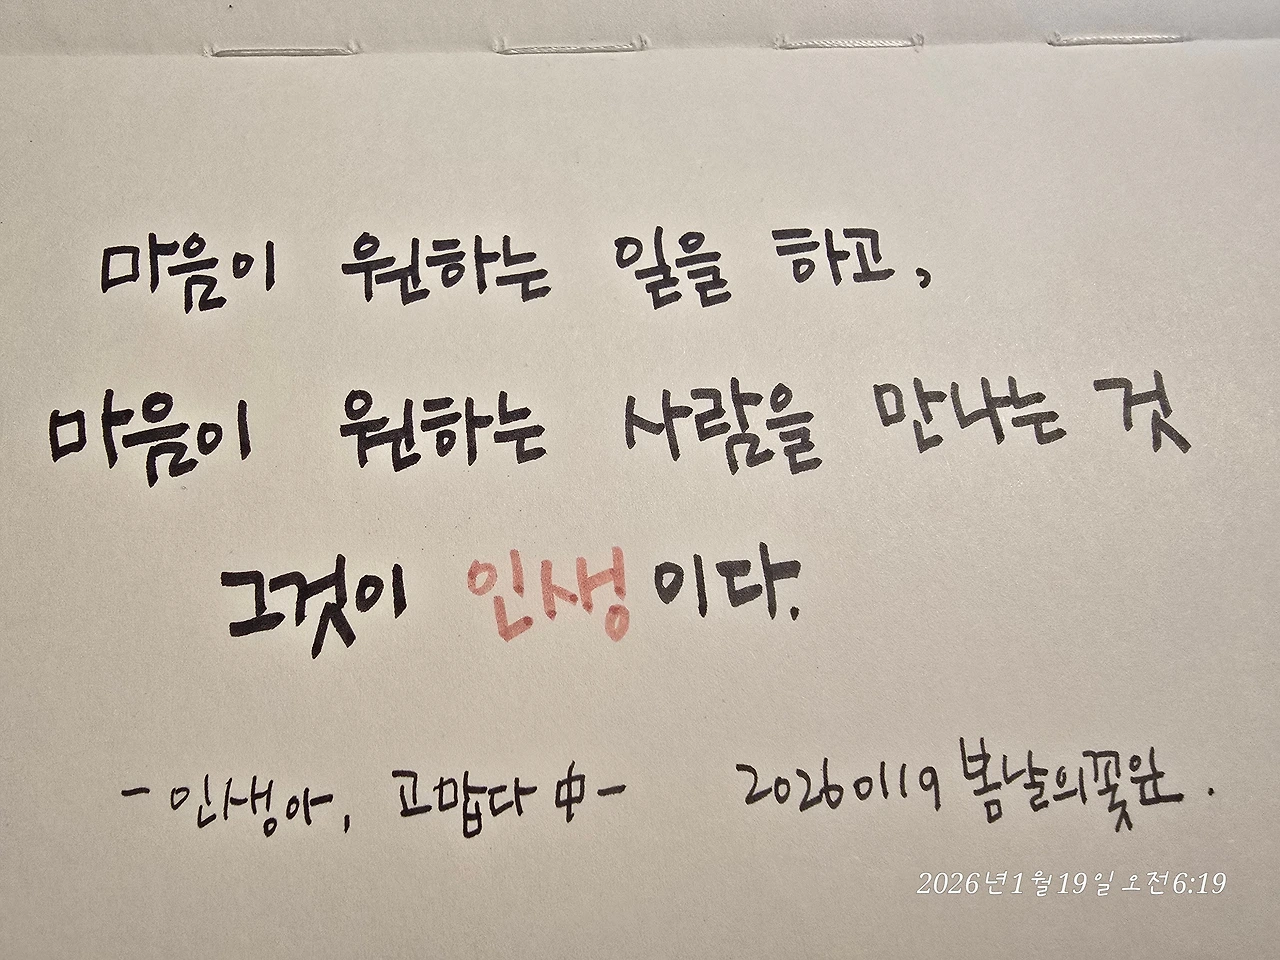 마음이 원하는 일을 하고,
마음이 원하는 사람을 만나는 것
그것이 인생이다.
- 인생아, 고맙다 中 -
20260119 봄날의꽃완.
2026년1월19일 오전6:19